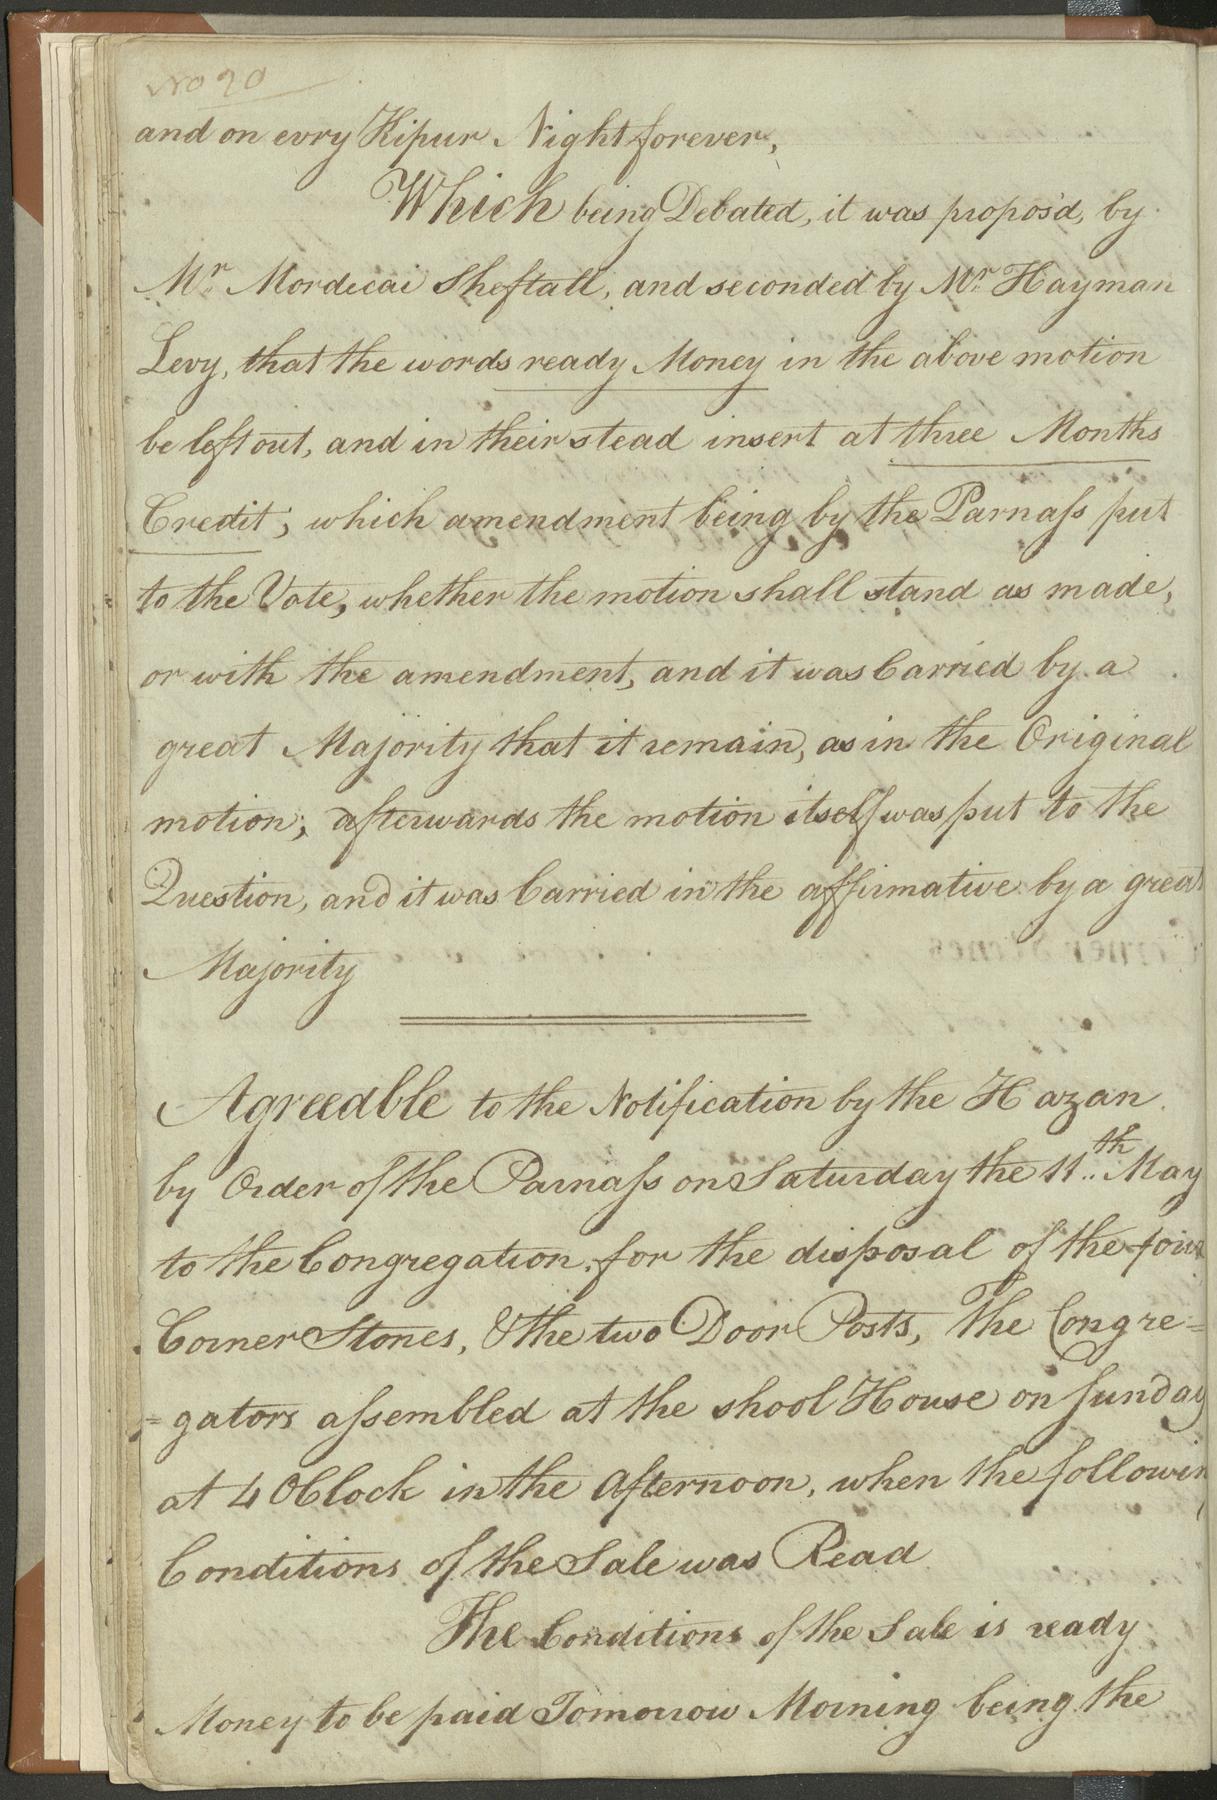 No 20
and on evry Kipur Night forever,
Which being Debated, it was propos'd, by
Mr. Mordecai Sheftall, and seconded by Mr. Hayman
Levy, that the words ready Money in the above motion
be left out, and in their stead insert at three Months
Credit; which amendment being by the Parnass put
to the Vote, whether the motion shall stand as made,
or with the amendment, and it was Carried by a
great Majority that it remain, as in the Original
motion; afterwards the motion itself was put to the
Question, and it was Carried in the affirmative by a great
Majority
Agreeable to the Notification by the Hazan
by Order of the Parnass on Saturday the 11th.. May
to the Congregation for the disposal of the four
Corner Stones, & the two Door Posts, The Congre=
=gators assembled at the shool House on Sunday
at 4 OClock in the Afternoon, when the followin
Conditions of the Sale was Read
The Conditions of the Sale is ready
Money to be paid Tomorrow Morning being the